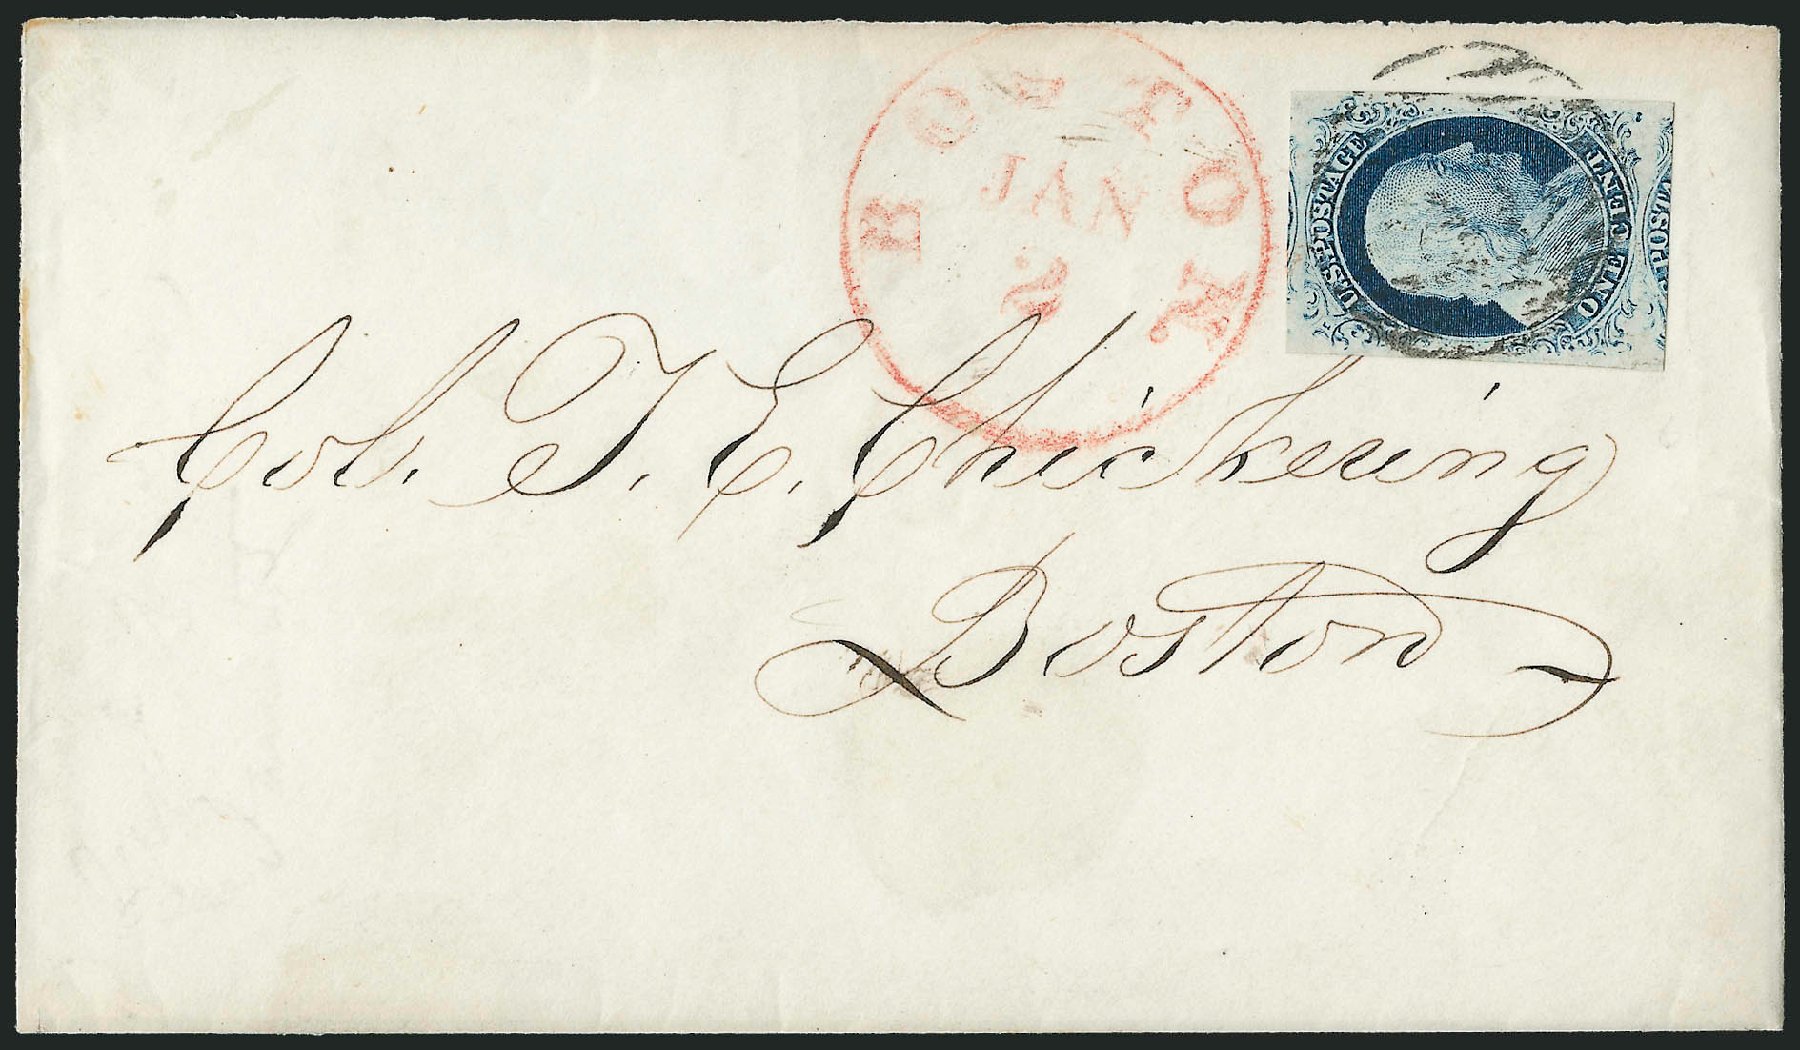 BOSTON
JAN
2
U.S. POSTAGE
ONE CENT
U.S. POST
Col. T. E. Chickering
Boston